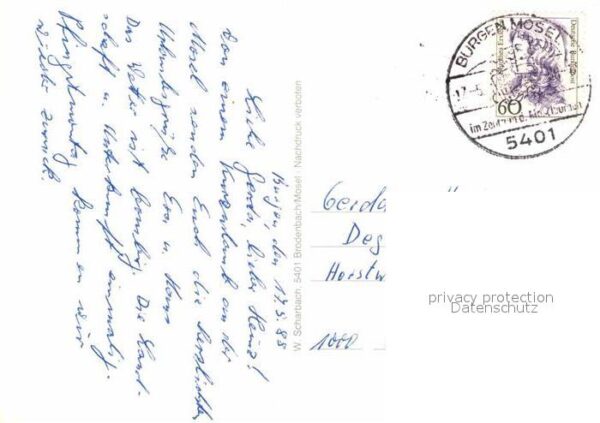 Burgen, den 17.5.88
Liebe Gerda, lieber Heinz!
Von einem Kurzurlaub an der
Mosel senden Euch die herzlichsten
Urlaubsgrüße Eva u. Hans
Das Wetter ist bombig. Die Land-
schaft u. Unterkunft einmalig.
Pfingstmontag kommen wir
wieder zurück.
W. Scharbach, 5401 Brodenbach/Mosel · Nachdruck verboten
BURGEN, MOSEL
17.-5.
5401
60
Deutsche Bundespost
Gerda
Deg
Horstw
1000
privacy protection
Datenschutz